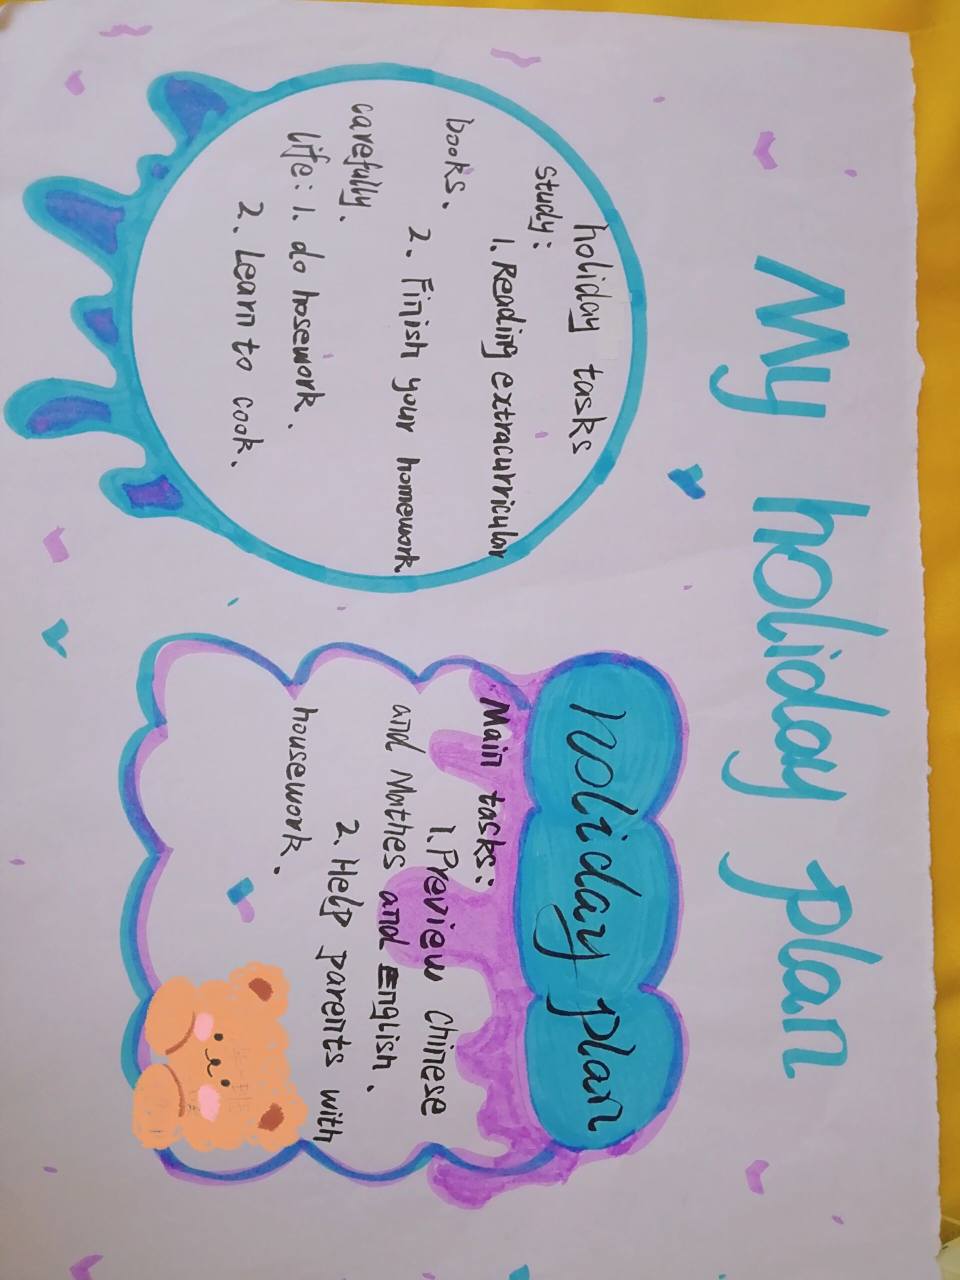 My holiday plan
holiday tasks
study:
1. Reading extracurricular
books.
2. Finish your homework
carefully.
life: 1. do hosework.
2. Learn to cook.
holiday plan
Main tasks:
1. Preview chinese
and Mathes and English.
2. Help parents with
housework.